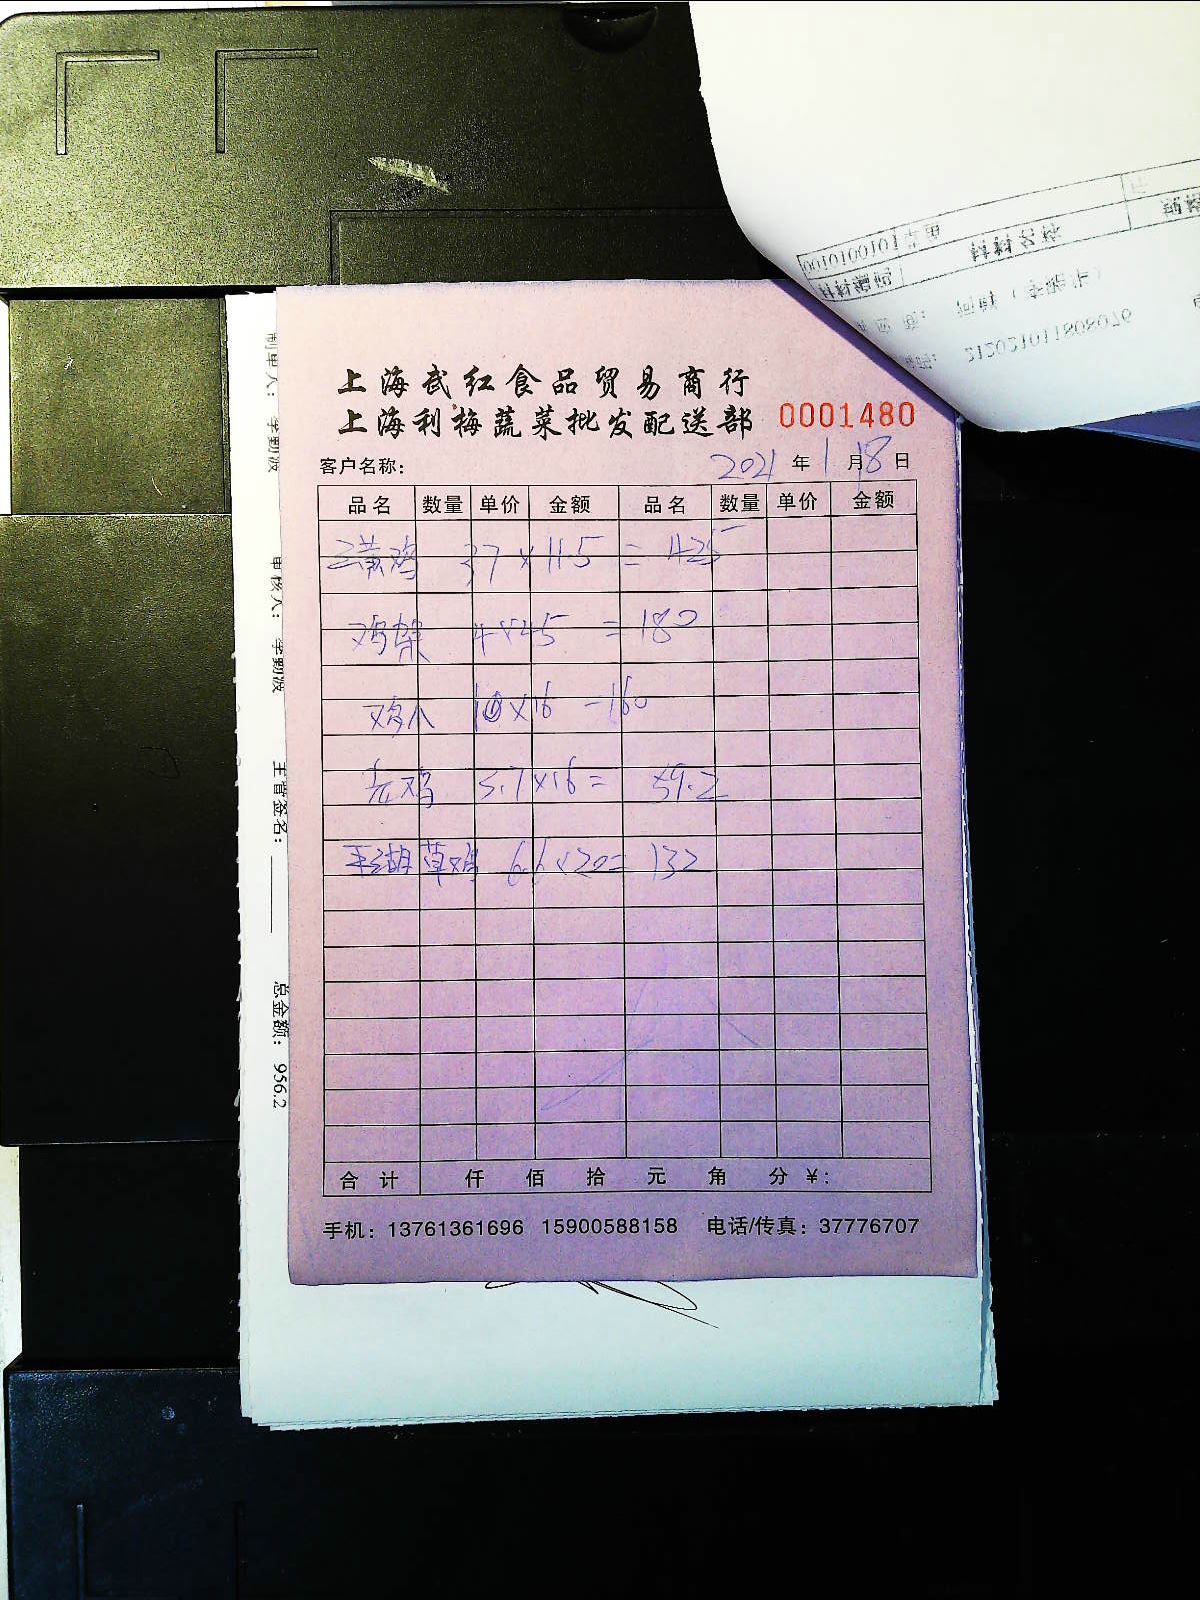 上海武红食品贸易商行
上海利梅蔬菜批发配送部 0001480
客户名称： 2021 年 1 月 18 日
品名 数量 单价 金额 品名 数量 单价 金额
三黄鸡 37×11.5 = 425
鸡架 4×45 = 180
鸡爪 10×16 -160
老鸡 3.7×16= 59.2
平湖草鸡 6.6×20= 132
合计 仟 佰 拾 元 角 分 ￥：
手机：13761361696 15900588158 电话/传真：37776707
制单人：
审核人：
主管签名：
总金额： 956.2
0010100101 草鱼
材料编码 材料名称 规格
212021011808076